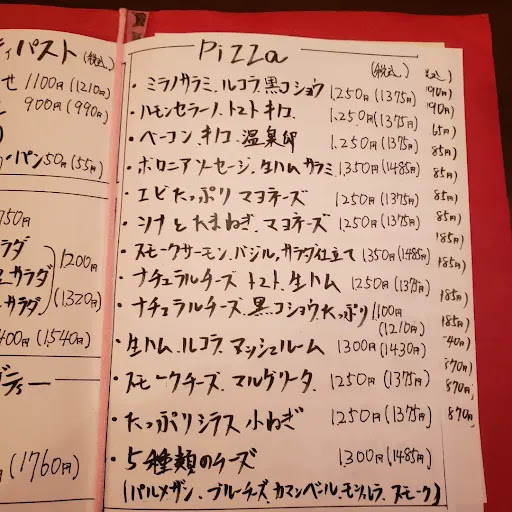 ティパスト(税込)
せ 1100円(1210円)
900円(990円)
パン50円(55円)
750円
サラダ
サラダ
サラダ
1,200円
(1320円)
400円(1,540円)
ティー
(1760円)
Pizza
(税込)
・ミラノサラミ、ルコラ、黒コショウ 1,250円(1375円)
・ルモンセラーノ、トマト、キノコ、 1,250円(1375円)
・ベーコン、キノコ、温泉卵 1,250円(1375円)
・ボロニアソーセージ、生ハム、サラミ 1,350円(1485円)
・エビたっぷりマヨネーズ 1250円(1375円)
・シナとたまねぎ、マヨネーズ 1250円(1375円)
・スモークサーモン、バジル、サラダ仕立て 1350円(1485円)
・ナチュラルチーズ トマト、生ハム 1250円(1375円)
・ナチュラルチーズ、黒コショウ、たっぷり 1,100円
(1210円)
・生ハム、ルコラ、マッシュルーム 1300円(1430円)
・スモークチーズ、マルゲリータ、 1250円(1375円)
・たっぷりシラス 小ねぎ 1250円(1375円)
・5種類のチーズ 1,300円(1485円)
(パルメザン、ブルーチーズ、カマンベール、モッツァレラ、スモーク)
税込)
190円)
190円)
65円)
85円)
85円)
85円)
85円)
185円)
185円)
185円)
185円)
40円)
870円)
870円)
870円)